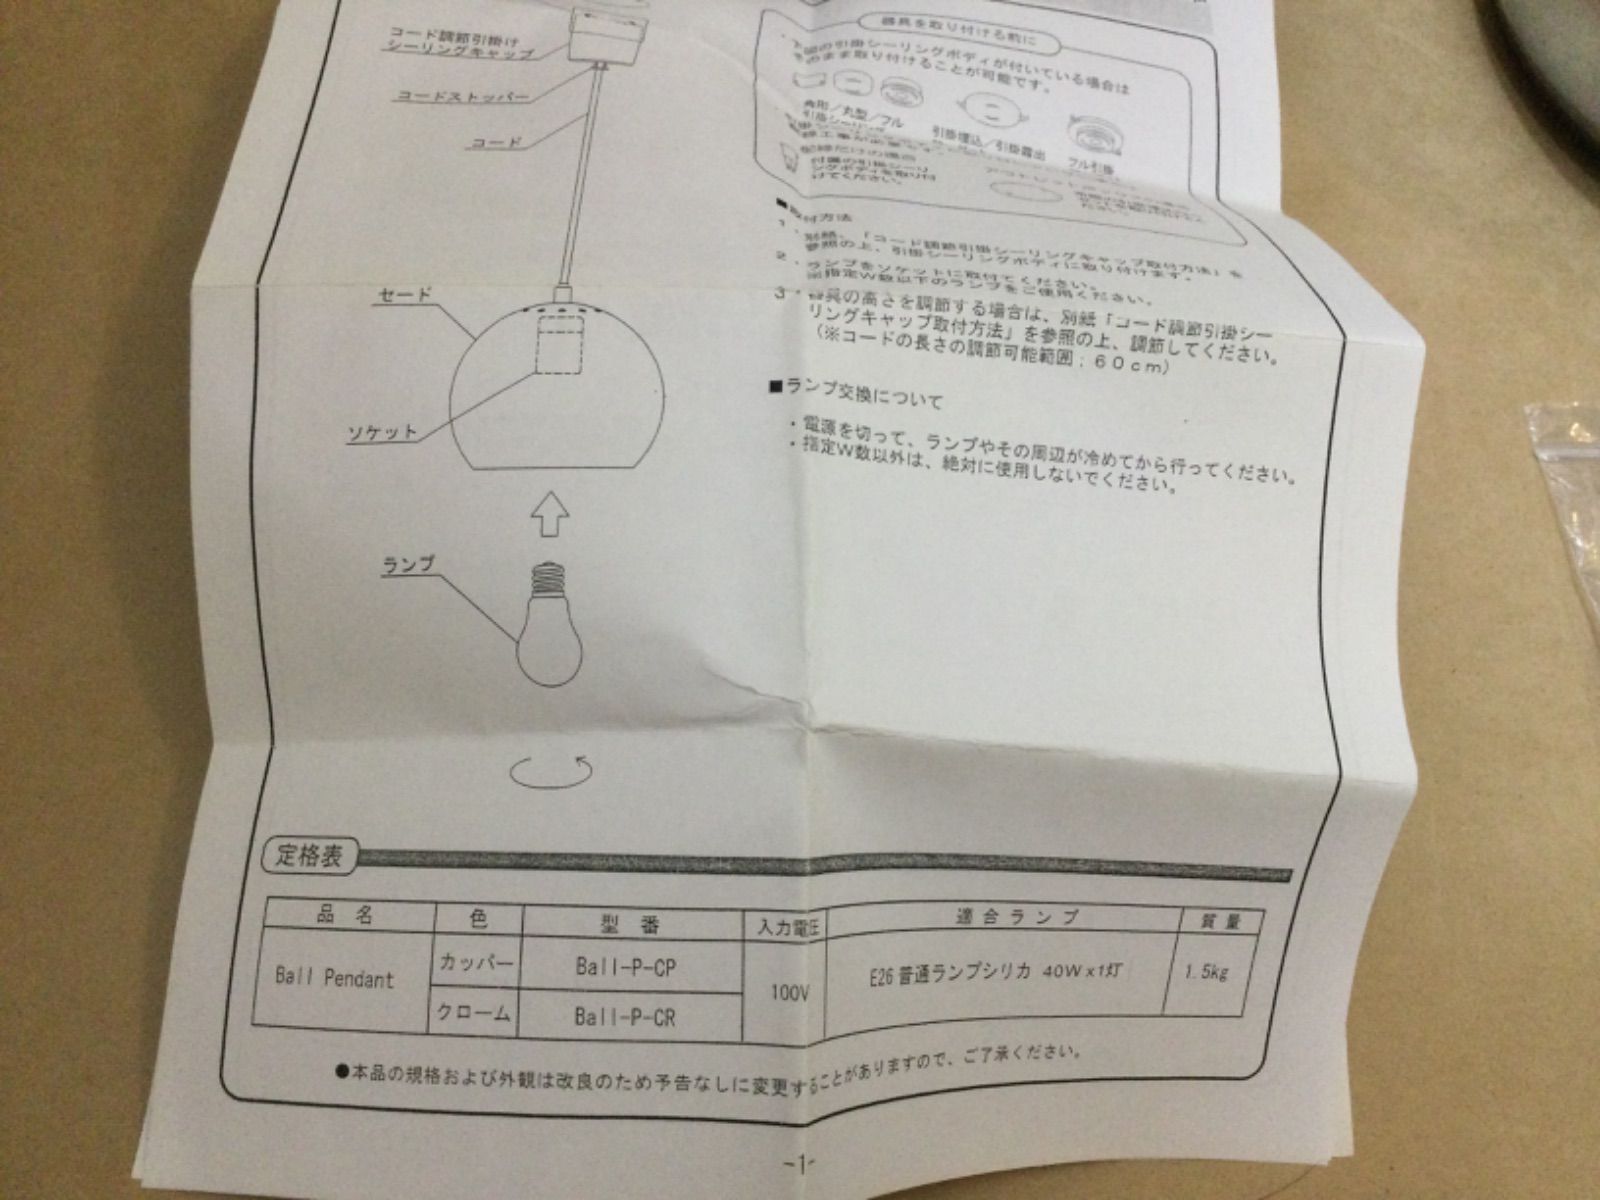 コード調節引掛け
シーリングキャップ
コードストッパー
コード
セード
ソケット
ランプ
器具を取り付ける前に
の引掛シーリングボディが付いている場合は
まま取り付けることが可能です。
角形／丸型／フル
引掛シーリング
引掛埋込／引掛露出
フル引掛
付属の引掛シーリ
ングボディを取り付
けてください。
■取付方法
1．別紙、「コード調節引掛シーリングキャップ取付方法」を
参照の上、引掛シーリングボディに取り付けます。
2．ランプをソケットに取付てください。
指定W数以下のランプをご使用ください。
3．器具の高さを調節する場合は、別紙「コード調節引掛シー
リングキャップ取付方法」を参照の上、調節してください。
（※コードの長さの調節可能範囲；60cm）
■ランプ交換について
・電源を切って、ランプやその周辺が冷めてから行ってください。
・指定W数以外は、絶対に使用しないでください。
定格表
品名 色 型番 入力電圧 適合ランプ 質量
Ball Pendant カッパー Ball-P-CP 100V E26 普通ランプシリカ 40W x1灯 1.5kg
クローム Ball-P-CR
●本品の規格および外観は改良のため予告なしに変更することがありますので、ご了承ください。
-1-